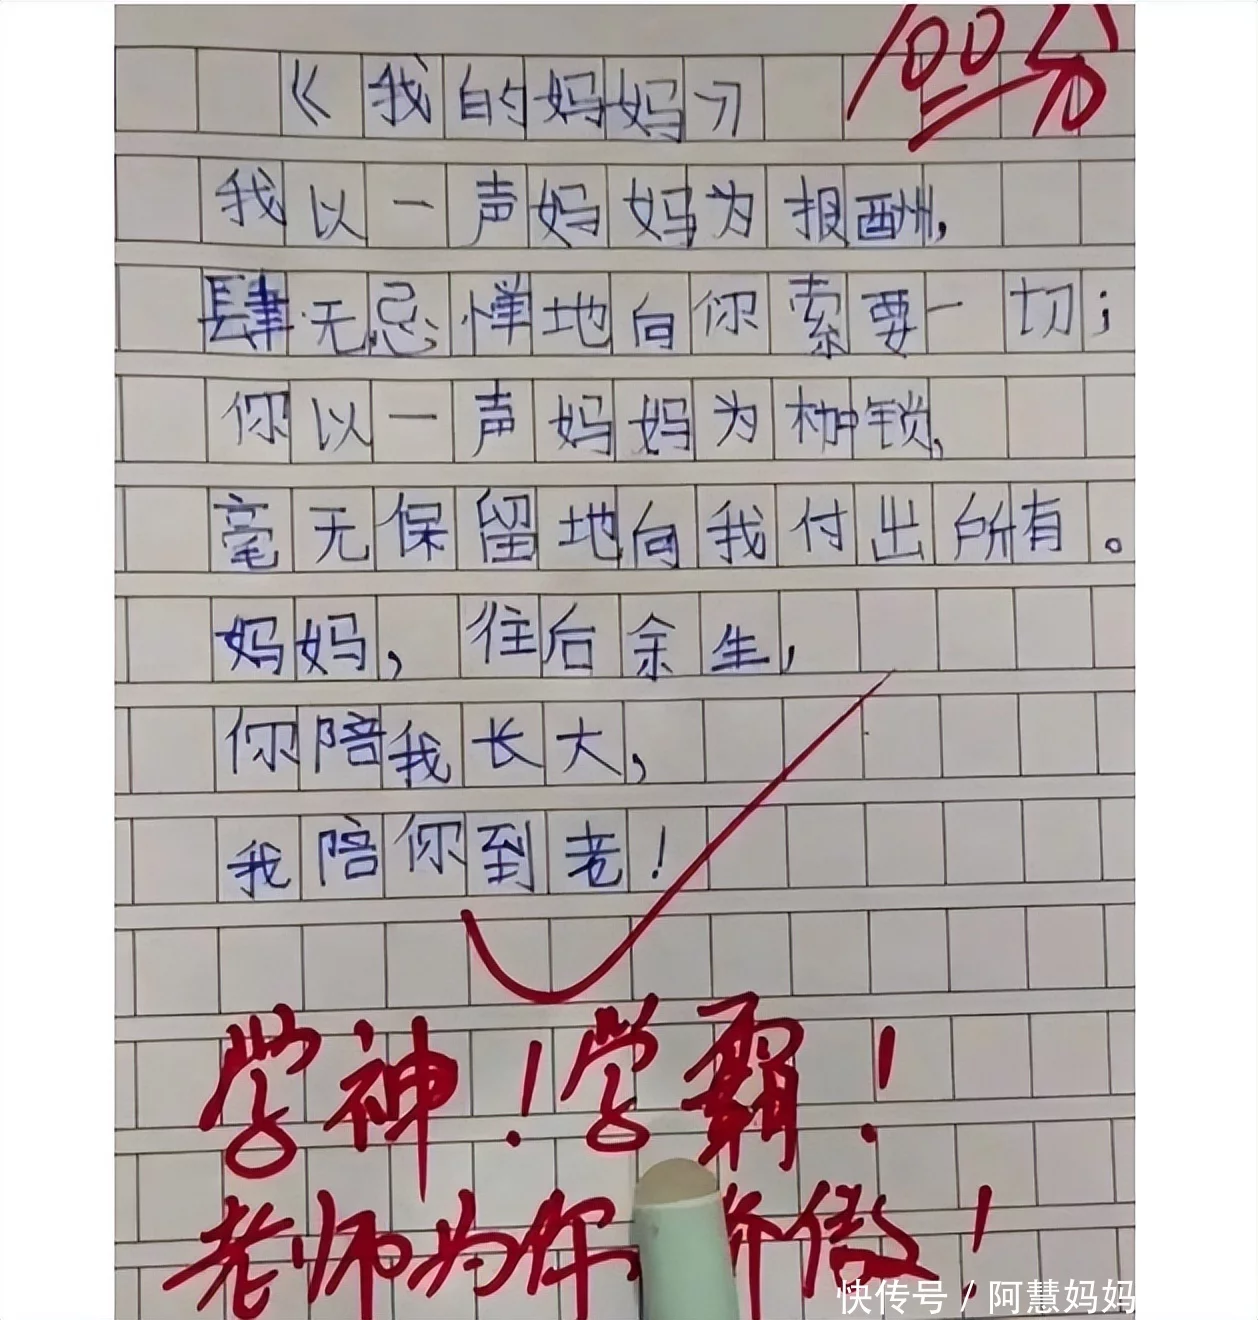 100分
《我的妈妈》
我以一声妈妈为报酬,
肆无忌惮地向你索要一切;
你以一声妈妈为枷锁,
毫无保留地向我付出所有。
妈妈,往后余生,
你陪我长大,
我陪你到老!
学神!学霸!
老师为你骄傲!
快传号/阿慧妈妈